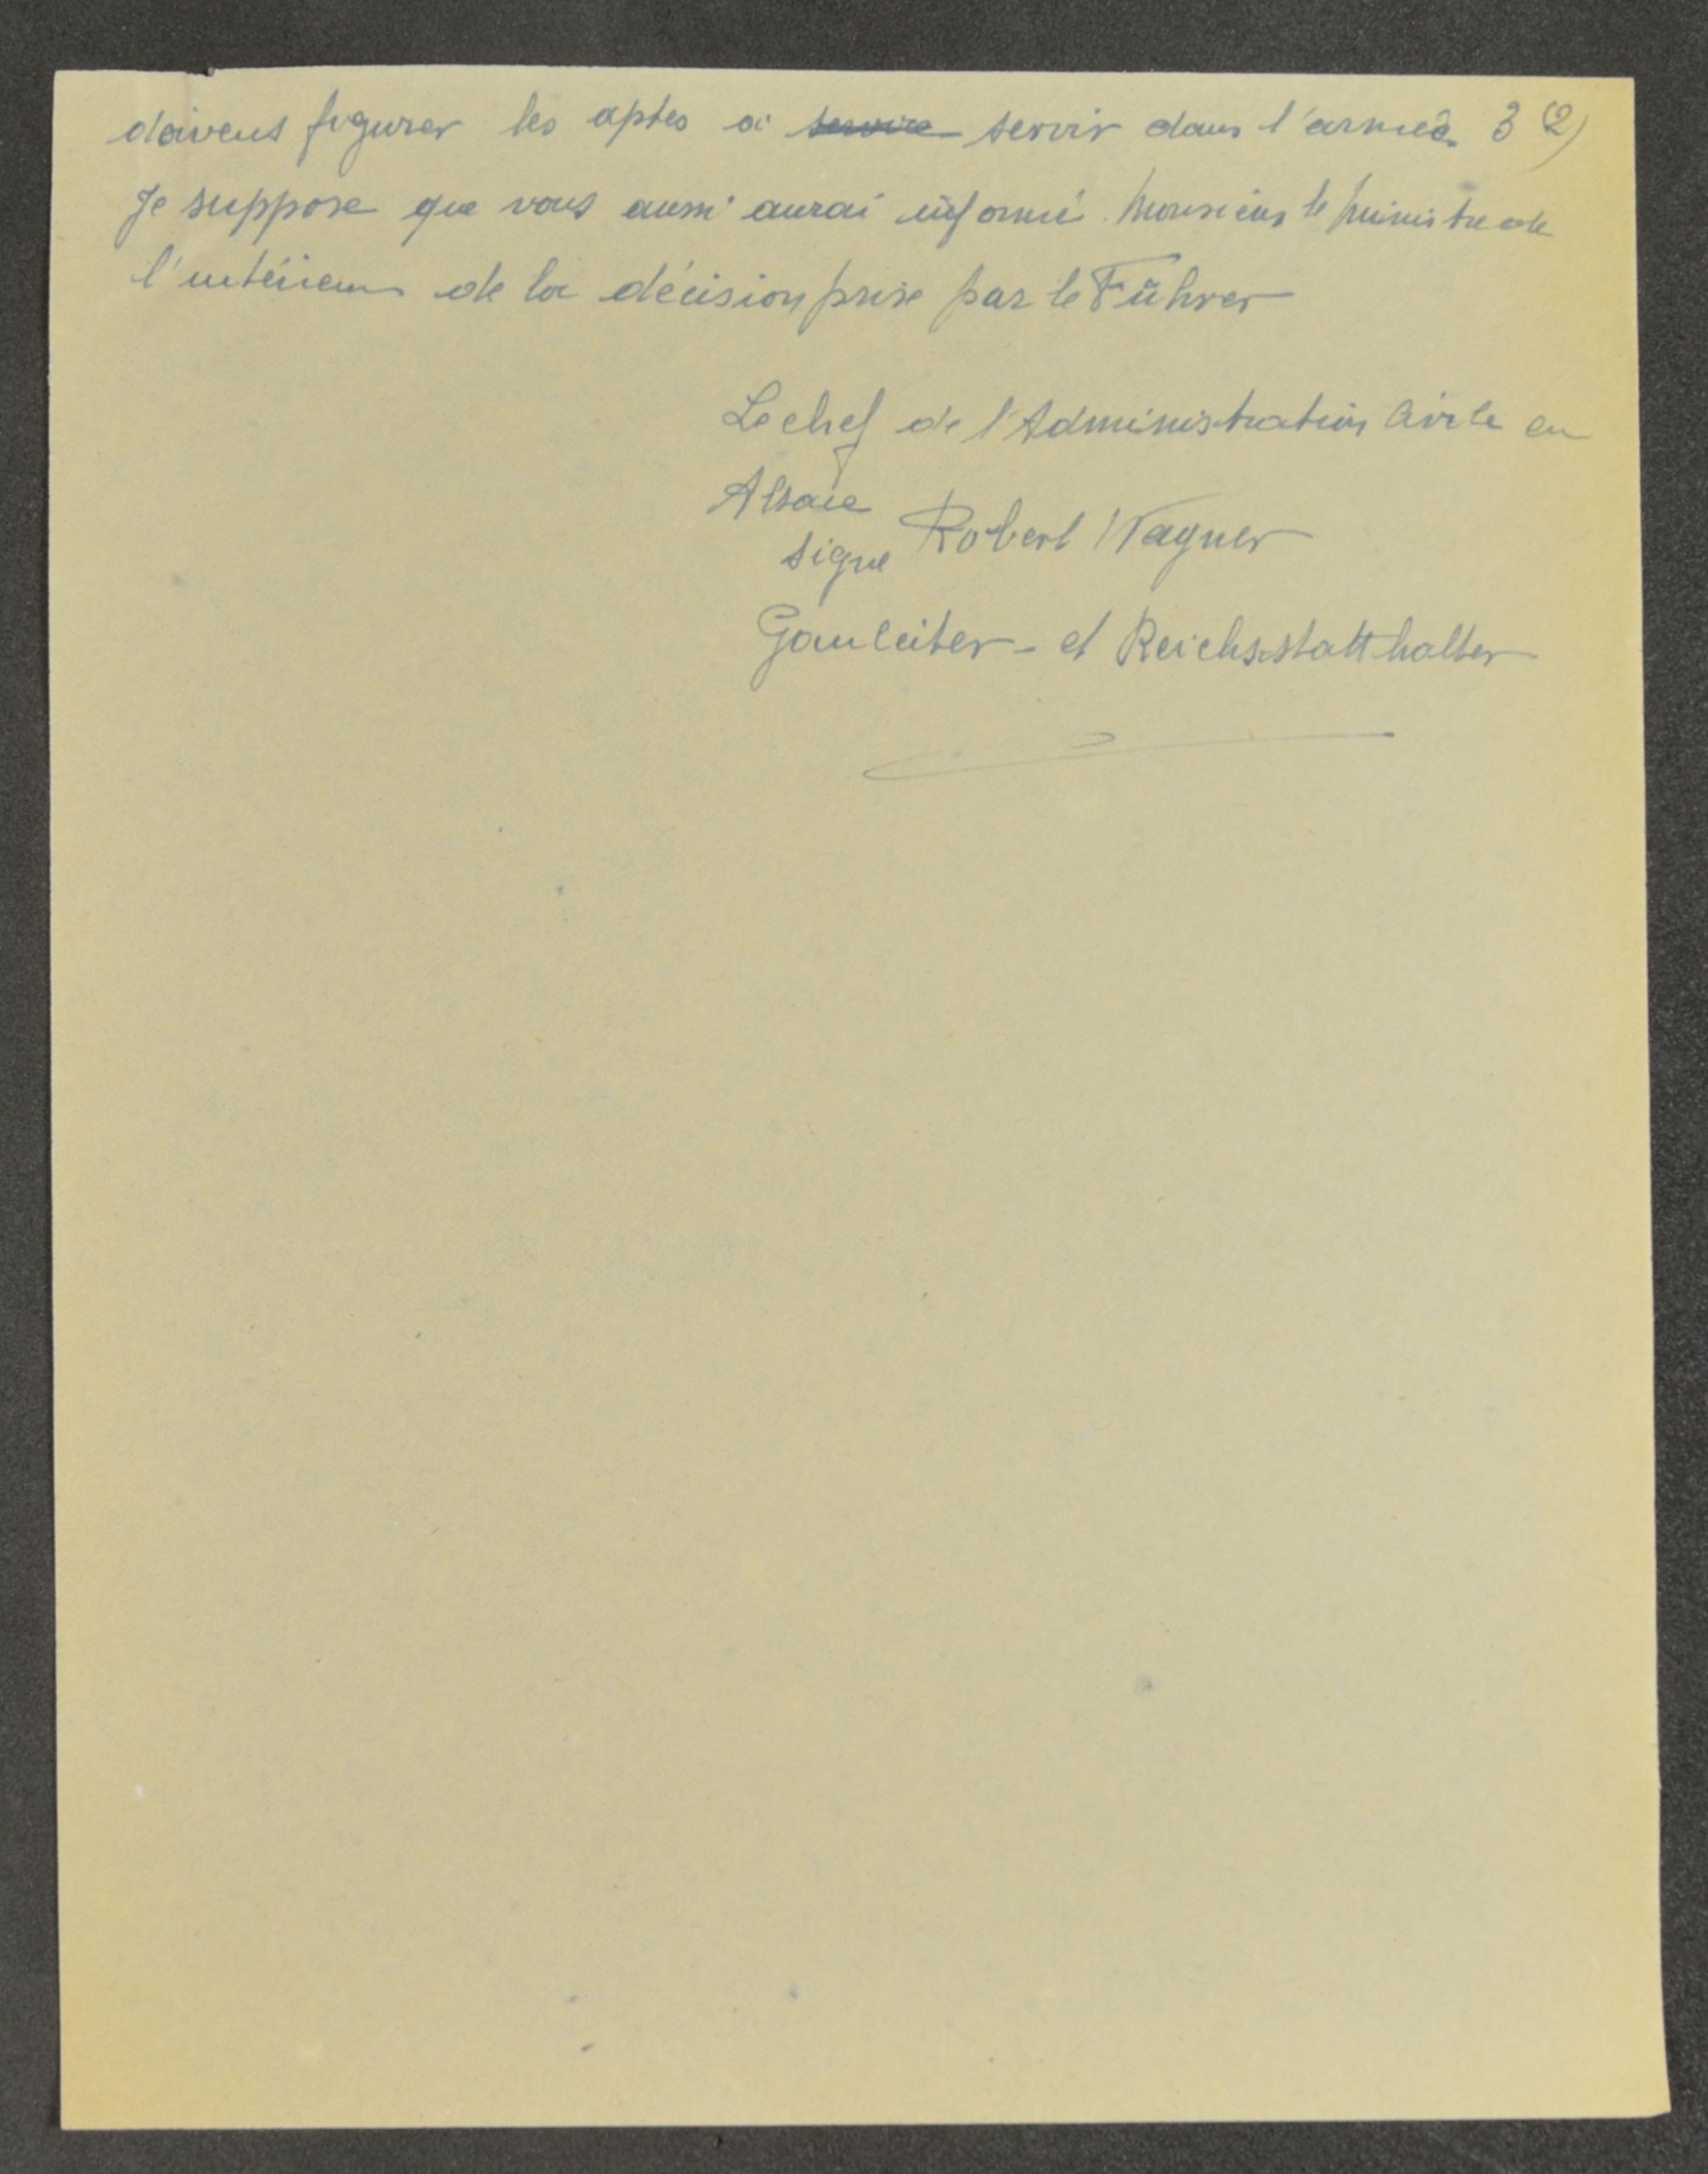 doivent figurer les aptes a ~~service~~ servir dans l'armée. 3 (2)
Je suppose que vous aussi aurai informé Monsieur le Ministre de
l'intérieur de la décision prise par le Führer
Le chef de l'Administration Civile en
Alsace
signe Robert Wagner
Gauleiter - et Reichsstatthalter